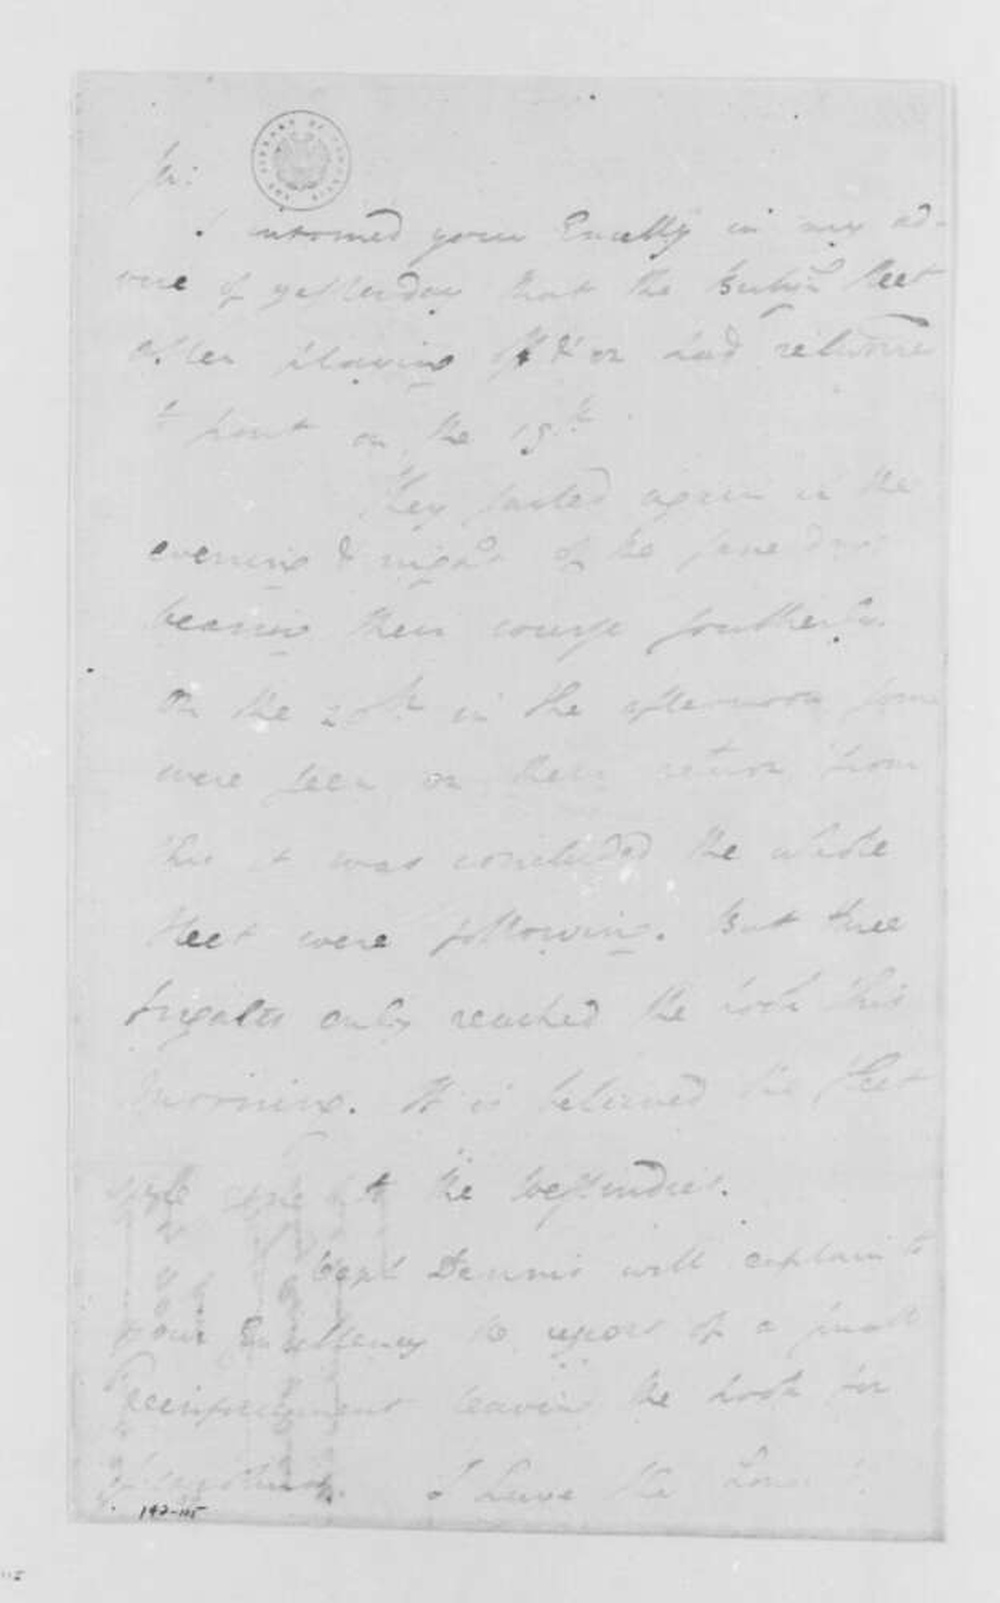 Sir:
I informed your Excelly in my ad-
vice of yesterday that the British fleet
after had returned
to port on the 19th.
They sailed again in the
evening & night of the same day
bearing their course southerly.
On the 20th in the afternoon some
were seen on their return from
this it was concluded the whole
fleet were following. But three
frigates only reached the hook this
morning. It is believed the fleet
are gone to the West indies.
Capt Dennis will explain to
your Excellency the report of a small
reinforcement leaving the hook for
I have the honor
142-115